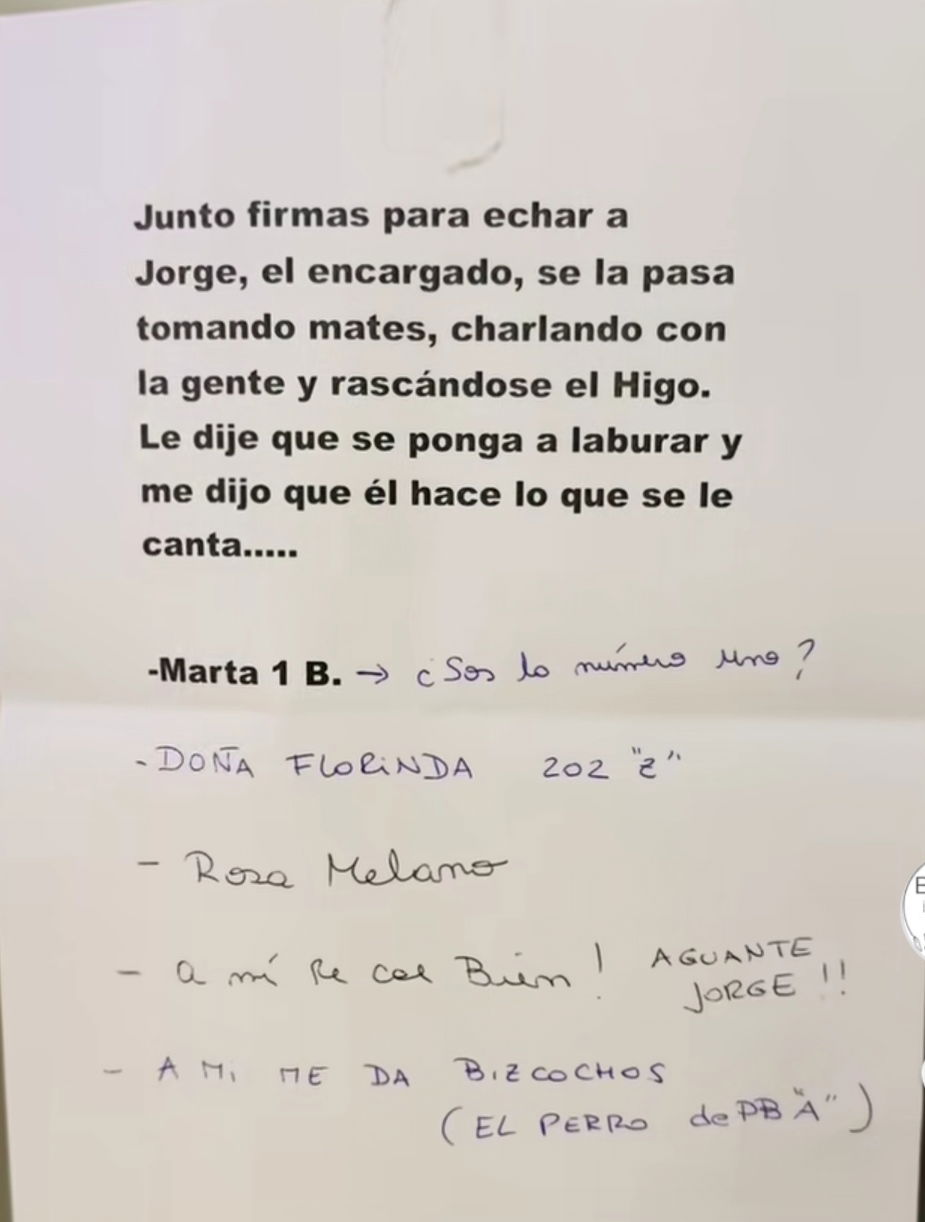 Junto firmas para echar a
Jorge, el encargado, se la pasa
tomando mates, charlando con
la gente y rascándose el Higo.
Le dije que se ponga a laburar y
me dijo que él hace lo que se le
canta.....
-Marta 1 B. → ¿Sos lo número uno?
-DOÑA FLORINDA 202 "Z"
- Rosa Melano
- a mí Re cae Bien! AGUANTE
JORGE!!
- A Mi ME DA BIZCOCHOS
(EL PERRO de PB "A")